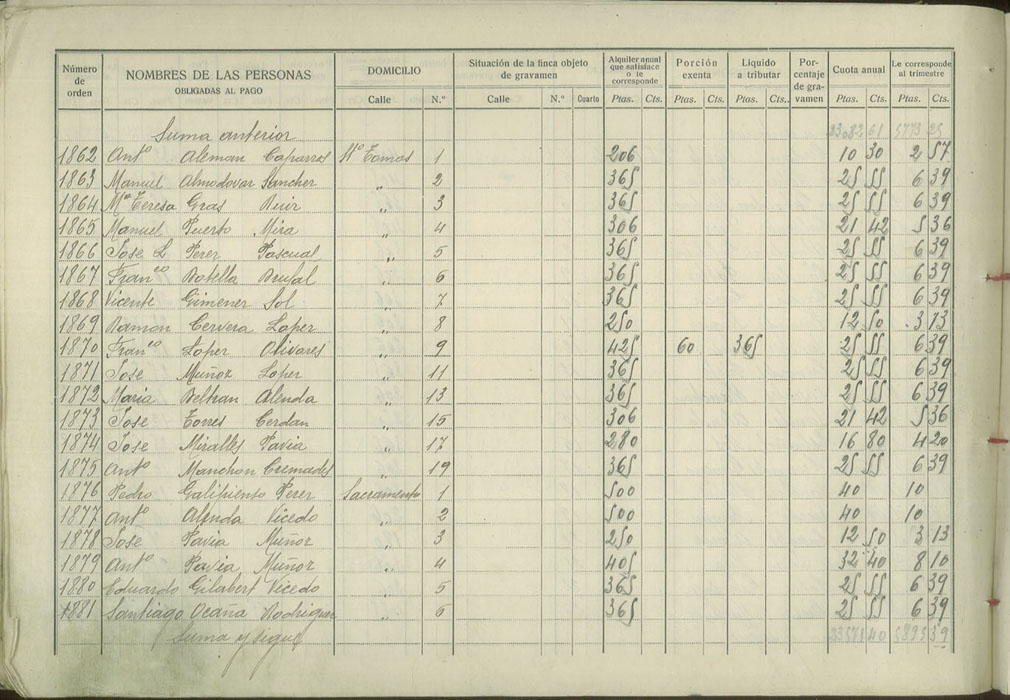 Número de orden | NOMBRES DE LAS PERSONAS OBLIGADAS AL PAGO | DOMICILIO Calle N.º | Situación de la finca objeto de gravamen Calle N.º Cuarto | Alquiler anual que satisface o le corresponde Ptas. Cts. | Porción exenta Ptas. Cts. | Líquido a tributar Ptas. Cts. | Porcentaje de gravamen | Cuota anual Ptas. Cts. | Le corresponde al trimestre Ptas. Cts.
Suma anterior 23.082 61 5773 25
1862 Antº Aleman Caparros Stº Tomas 1 206 10 30 2 57
1863 Manuel Almodovar Sanchez " 2 365 25 55 6 39
1864 Mª Teresa Gras Ruiz " 3 365 25 55 6 39
1865 Manuel Puerto Mira " 4 306 21 42 5 36
1866 Jose L Perez Pascual " 5 365 25 55 6 39
1867 Franco Botella Brufal " 6 365 25 55 6 39
1868 Vicente Gimenez Sol " 7 365 25 55 6 39
1869 Ramon Cervera Lopez " 8 250 12 50 3 13
1870 Franco Lopez Olivares " 9 425 60 365 25 55 6 39
1871 Jose Muñoz Lopez " 11 365 25 55 6 39
1872 Maria Beltran Alenda " 13 365 25 55 6 39
1873 Jose Torres Cerdan " 15 306 21 42 5 36
1874 Jose Miralles Pavia " 17 280 16 80 4 20
1875 Antº Manchon Cremades " 19 365 25 55 6 39
1876 Pedro Galipiento Perez Sacramento 1 500 40 10
1877 Antº Alenda Vicedo " 2 500 40 10
1878 Jose Pavia Muñoz " 3 250 12 50 3 13
1879 Antº Pavia Muñoz " 4 405 32 40 8 10
1880 Eduardo Gilabert Vicedo " 5 365 25 55 6 39
1881 Santiago Ocaña Rodriguez " 6 365 25 55 6 39
Suma y sigue 40 39